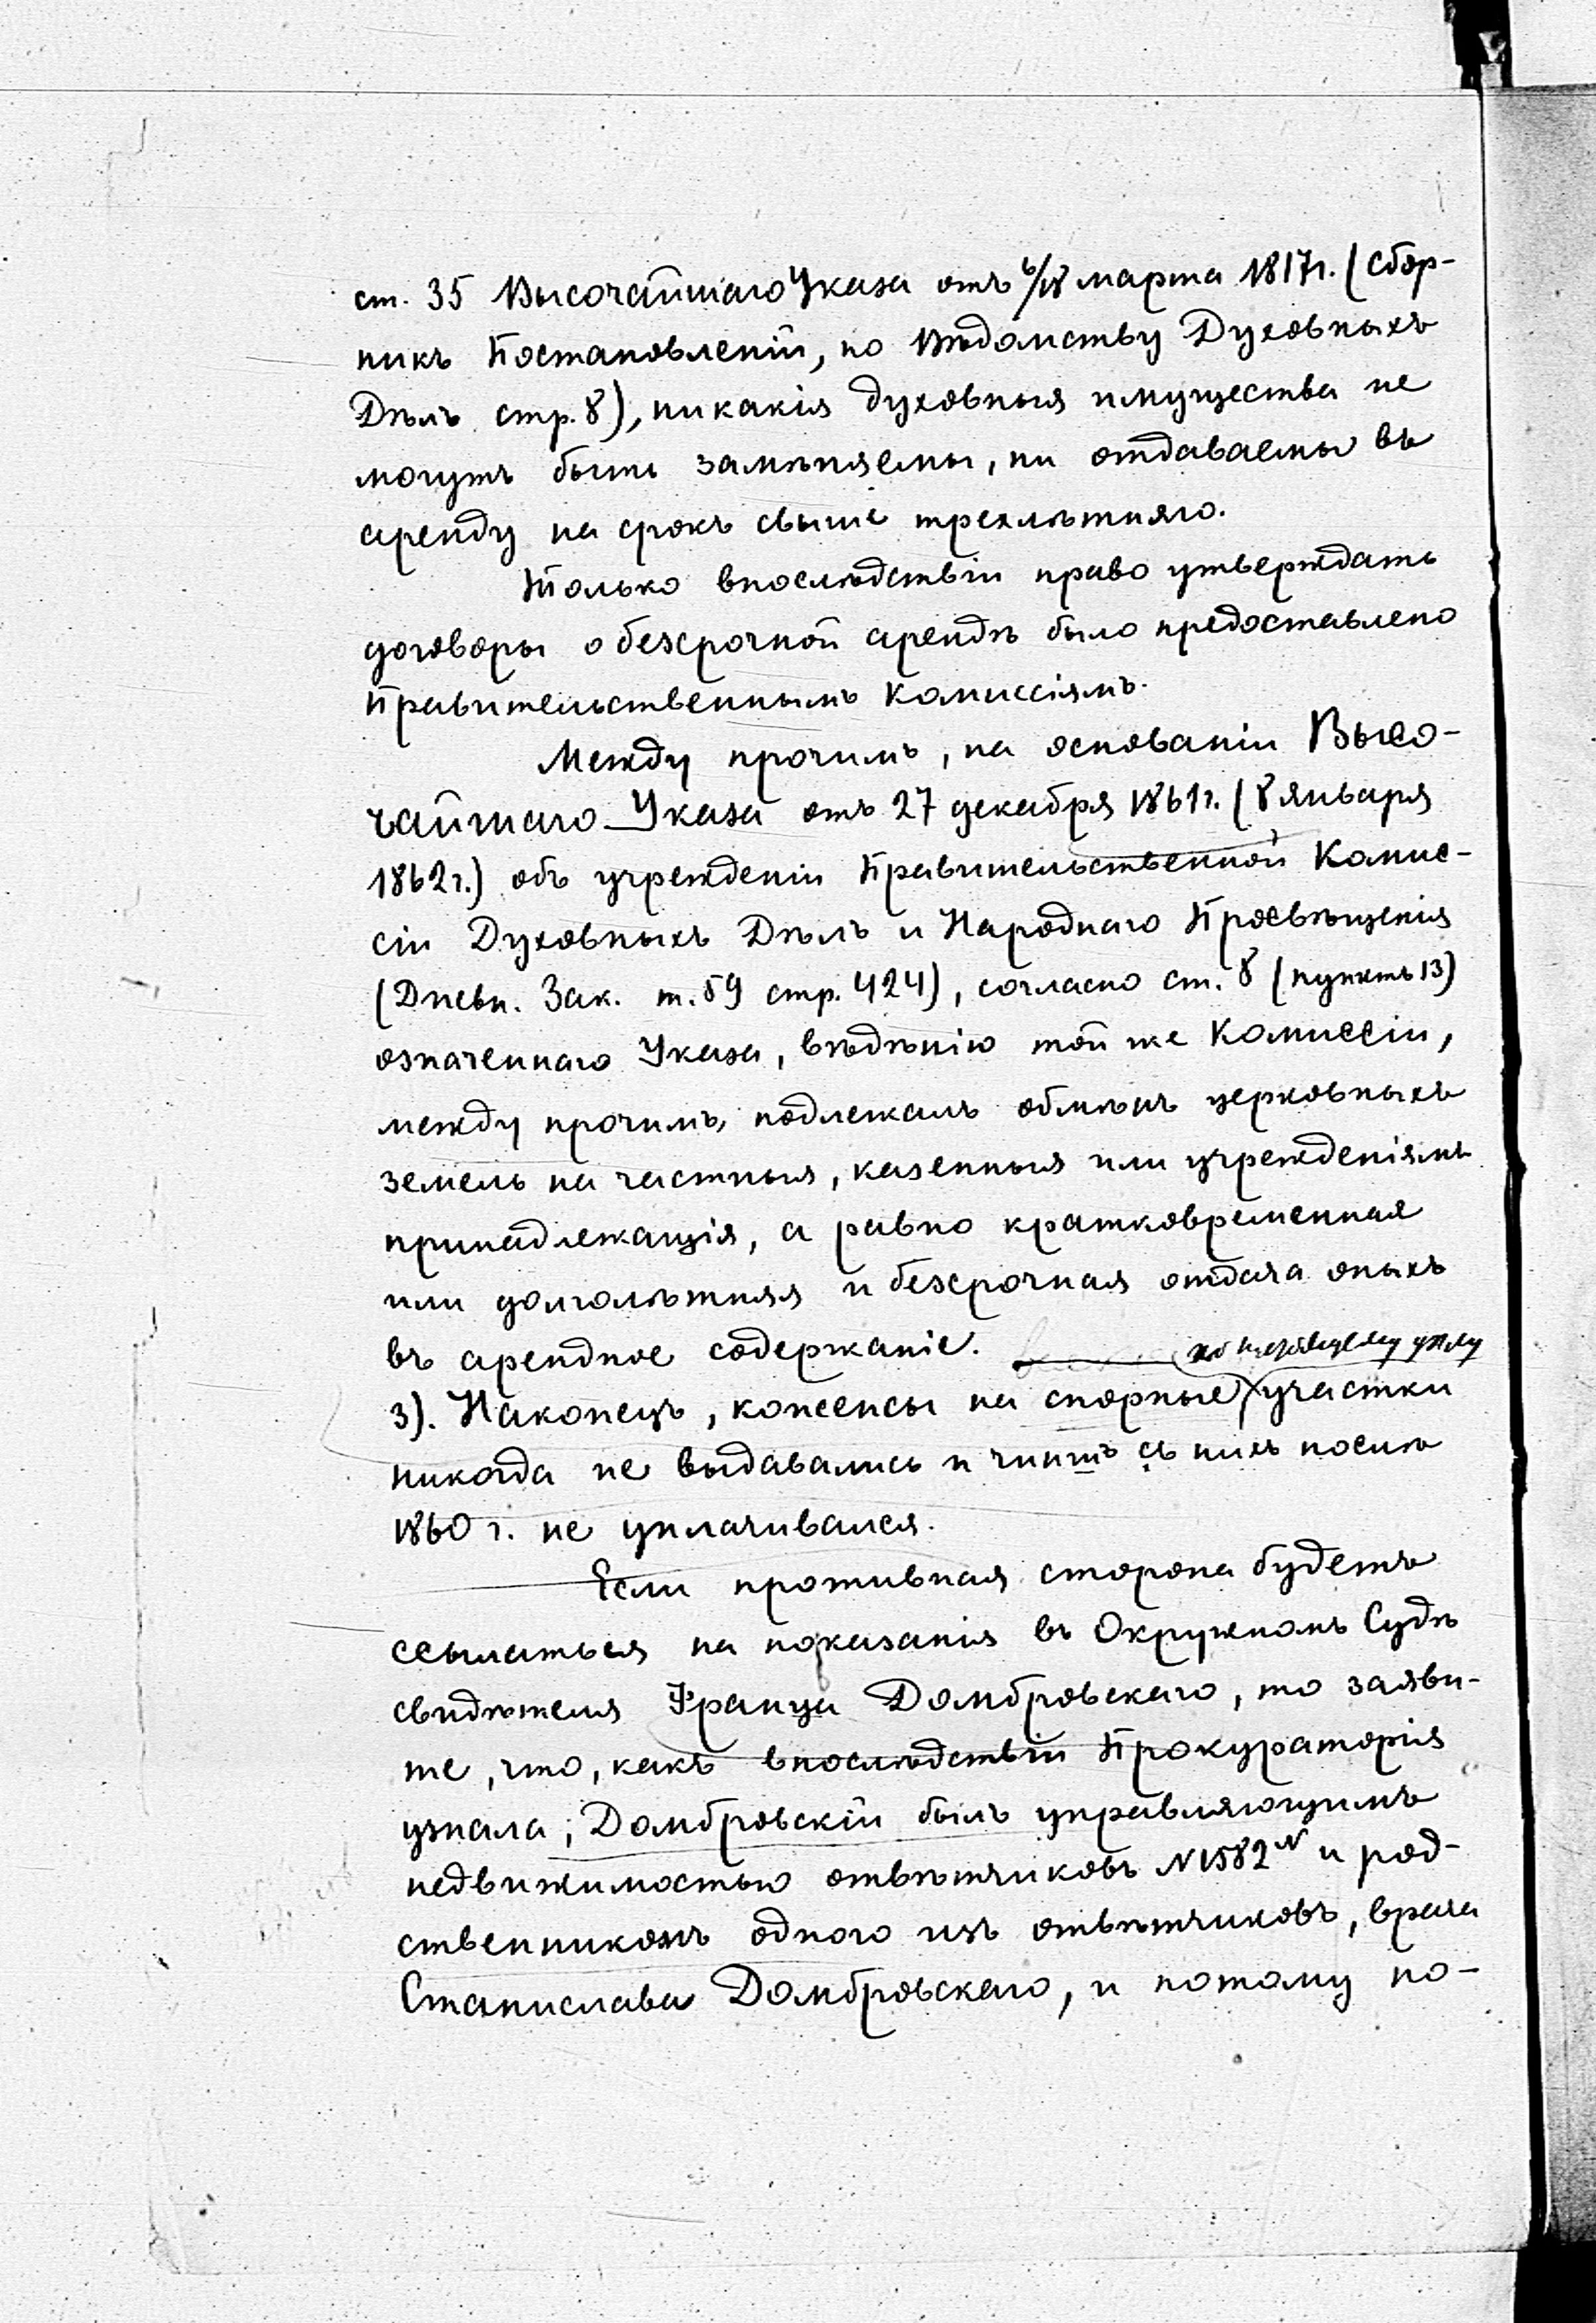 ст. 35 Высочайшаго Указа отъ 6/18 марта 1817г. (Сбор-
никъ Постановленій, по Вѣдомству Духовныхъ
Дѣлъ стр. 8), никакія духовныя имущества не
могутъ быть замѣняемы, ни отдаваемы въ
аренду на срокъ свыше трехлѣтняго.
Только впослѣдствіи право утверждать
договоры о безсрочной арендѣ было предоставлено
Правительственнымъ Комиссіямъ.
Между прочимъ, на основаніи Высо-
чайшаго Указа отъ 27 декабря 1861г. (8 января
1862г.) объ учрежденіи Правительственной Комис-
сіи Духовныхъ Дѣлъ и Народнаго Просвѣщенія
(Дневн. Зак. т. 59 стр. 424), согласно ст. 8 (пунктъ 13)
означеннаго Указа, вѣдѣнію той же Комиссіи,
между прочимъ, подлежалъ обмѣнъ церковныхъ
земель на частныя, казенныя или учрежденіямъ
принадлежащія, а равно кратковременная
или долголѣтняя и безсрочная отдача оныхъ
въ арендное содержаніе.
3). Наконецъ, консенсы на спорные участки
никогда не выдавались и чиншъ съ нихъ послѣ
1860 г. не уплачивался.
Если противная сторона будетъ
ссылаться на показанія въ Окружномъ Судѣ
свидѣтеля Франца Домбровскаго, то заяви-
те, что, какъ впослѣдствіи Прокураторія
узнала, Домбровскій былъ управляющимъ
недвижимостью отвѣтчиковъ N 1582 N и род-
ственникомъ одного изъ отвѣтчиковъ, врача
Станислава Домбровскаго, и потому по-